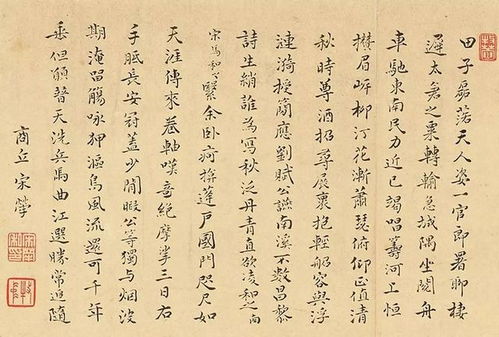 田子磊落天人姿一官郎署聊棲
遲太倉之粟轉輸急城隅坐閱舟
車馳東南民力近已竭唱籌河上恒
攢眉岍柳汀花漸蕭瑟俯仰正值清
秋時尊酒招尋展裹抱輕舠容與浮
漣漪授簡應劉賦公讌南溪不數昌黎
詩生綃誰為寫秋泛丹青直欲凌和之南
宋馬和之繄余臥疴揜蓬戶國門咫尺如
天涯傳來卷軸嘆奇絕摩挲三日右
手胝長安冠蓋少閒暇公等獨与烟波
期淹留觴咏狎漚鳥風流還可千年
垂但願替天洗兵馬曲江選勝常追隨
商丘宋犖